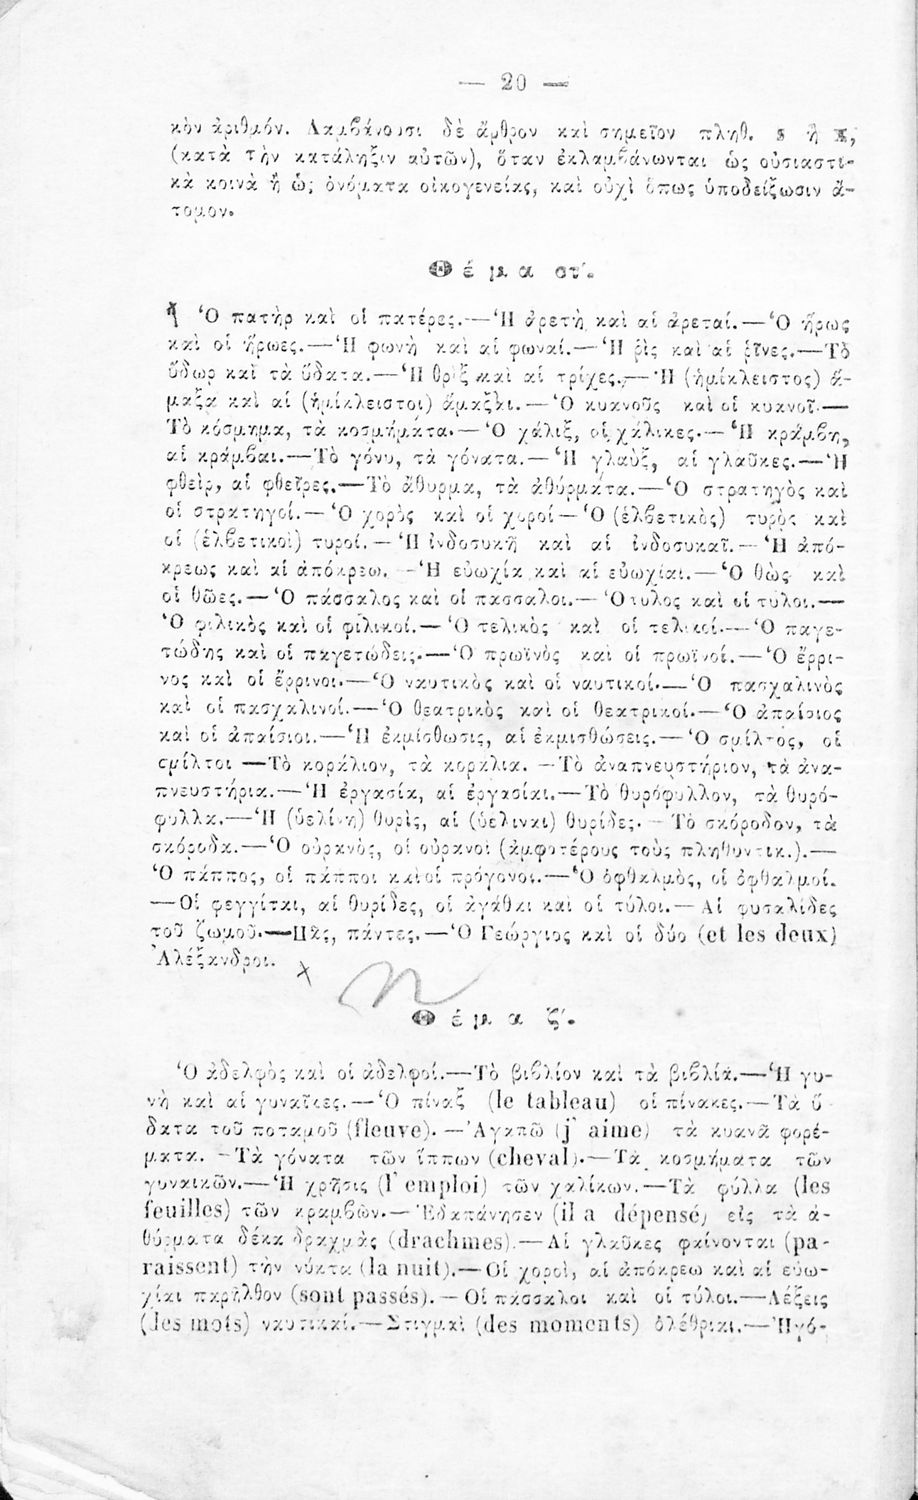 — 20 —
κὸν ἀριθμόν. Λαμβάνουσι δὲ ἄρθρον καὶ σημεῖον πληθ. s ἢ x,
(κατὰ τὴν κατάληξιν αὐτῶν), ὅταν ἐκλαμβάνωνται ὡς οὐσιαστι-
κὰ κοινὰ ἢ ὡς ὀνόματα οἰκογενείας, καὶ οὐχὶ ὅπως ὑποδείξωσιν ἄ-
τομον.
Θέμα στ΄.
Ὁ πατὴρ καὶ οἱ πατέρες.—Ἡ ἀρετὴ καὶ αἱ ἀρεταί.—Ὁ ἥρως
καὶ οἱ ἥρωες.—Ἡ φωνὴ καὶ αἱ φωναί.—Ἡ ῥὶς καὶ αἱ ῥῖνες.—Τὸ
ὕδωρ καὶ τὰ ὕδατα.—Ἡ θρὶξ καὶ αἱ τρίχες.—Ἡ (ἡμίκλειστος) ἅ-
μαξα καὶ αἱ (ἡμίκλειστοι) ἅμαξαι.—Ὁ κυανοῦς καὶ οἱ κυανοῖ.—
Τὸ κόσμημα, τὰ κοσμήματα.—Ὁ χάλιξ, οἱ χάλικες.—Ἡ κράμβη,
αἱ κράμβαι.—Τὸ γόνυ, τὰ γόνατα.—Ἡ γλαὺξ, αἱ γλαῦκες.—Ἡ
φθεὶρ, αἱ φθεῖρες.—Τὸ ἄθυρμα, τὰ ἀθύρματα.—Ὁ στρατηγὸς καὶ
οἱ στρατηγοί.—Ὁ χορὸς καὶ οἱ χοροί—Ὁ (ἑλβετικὸς) τυρὸς καὶ
οἱ (ἑλβετικοὶ) τυροί.—Ἡ ἰνδοσυκῆ καὶ αἱ ἰνδοσυκαῖ.—Ἡ ἀπό-
κρεως καὶ αἱ ἀπόκρεω.—Ἡ εὐωχία καὶ αἱ εὐωχίαι.—Ὁ θὼς καὶ
οἱ θῶες.—Ὁ πάσσαλος καὶ οἱ πάσσαλοι.—Ὁ τυλος καὶ οἱ τύλοι.—
Ὁ φιλικὸς καὶ οἱ φιλικοί.—Ὁ τελικὸς καὶ οἱ τελικοί.—Ὁ παγε-
τώδης καὶ οἱ παγετώδεις.—Ὁ πρωϊνὸς καὶ οἱ πρωϊνοί.—Ὁ ἔρρι-
νος καὶ οἱ ἔρρινοι.—Ὁ ναυτικὸς καὶ οἱ ναυτικοί.—Ὁ πασχαλινὸς
καὶ οἱ πασχαλινοί.—Ὁ θεατρικὸς καὶ οἱ θεατρικοί.—Ὁ ἀπαίσιος
καὶ οἱ ἀπαίσιοι.—Ἡ ἐκμίσθωσις, αἱ ἐκμισθώσεις.—Ὁ σμίλτος, οἱ
σμίλτοι —Τὸ κοράλιον, τὰ κοράλια.—Τὸ ἀναπνευστήριον, τὰ ἀνα-
πνευστήρια.—Ἡ ἐργασία, αἱ ἐργασίαι.—Τὸ θυρόφυλλον, τὰ θυρό-
φυλλα.—Ἡ (ὑελίνη) θυρὶς, αἱ (ὑελιναι) θυρίδες.—Τὸ σκόροδον, τὰ
σκόροδα.—Ὁ οὐρανὸς, οἱ οὐρανοὶ (ἀμφοτέρους τοὺς πληθυντικ.).—
Ὁ πάππος, οἱ πάπποι καὶ οἱ πρόγονοι.—Ὁ ὀφθαλμὸς, οἱ ὀφθαλμοί.
—Οἱ φεγγίται, αἱ θυρίδες, οἱ ἀγάθαι καὶ οἱ τύλοι.—Αἱ φυσαλίδες
τοῦ ζωμοῦ.—Πᾶς, πάντες.—Ὁ Γεώργιος καὶ οἱ δύο (et les deux)
Ἀλέξανδροι.
Θέμα ζ΄.
Ὁ ἀδελφὸς καὶ οἱ ἀδελφοί.—Τὸ βιβλίον καὶ τὰ βιβλία.—Ἡ γυ-
νὴ καὶ αἱ γυναῖκες.—Ὁ πίναξ (le tableau) οἱ πίνακες.—Τὰ ὕ-
δατα τοῦ ποταμοῦ (fleuve).—Ἀγαπῶ (j' aime) τὰ κυανᾶ φορέ-
ματα.—Τὰ γόνατα τῶν ἵππων (cheval).—Τὰ κοσμήματα τῶν
γυναικῶν.—Ἡ χρῆσις (l' emploi) τῶν χαλίκων.—Τὰ φύλλα (les
feuilles) τῶν κραμβῶν.—Ἐδαπάνησεν (il a dépensé) εἰς τὰ ἀ-
θύρματα δέκα δραχμὰς (drachmes).—Αἱ γλαῦκες φαίνονται (pa-
raissent) τὴν νύκτα (la nuit).—Οἱ χοροὶ, αἱ ἀπόκρεω καὶ αἱ εὐω-
χίαι παρῆλθον (sont passés).—Οἱ πάσσαλοι καὶ οἱ τύλοι.—Λέξεις
(des mots) ναυτικαί.—Στιγμαὶ (des moments) ὀλέθριαι.—Ἠγό-